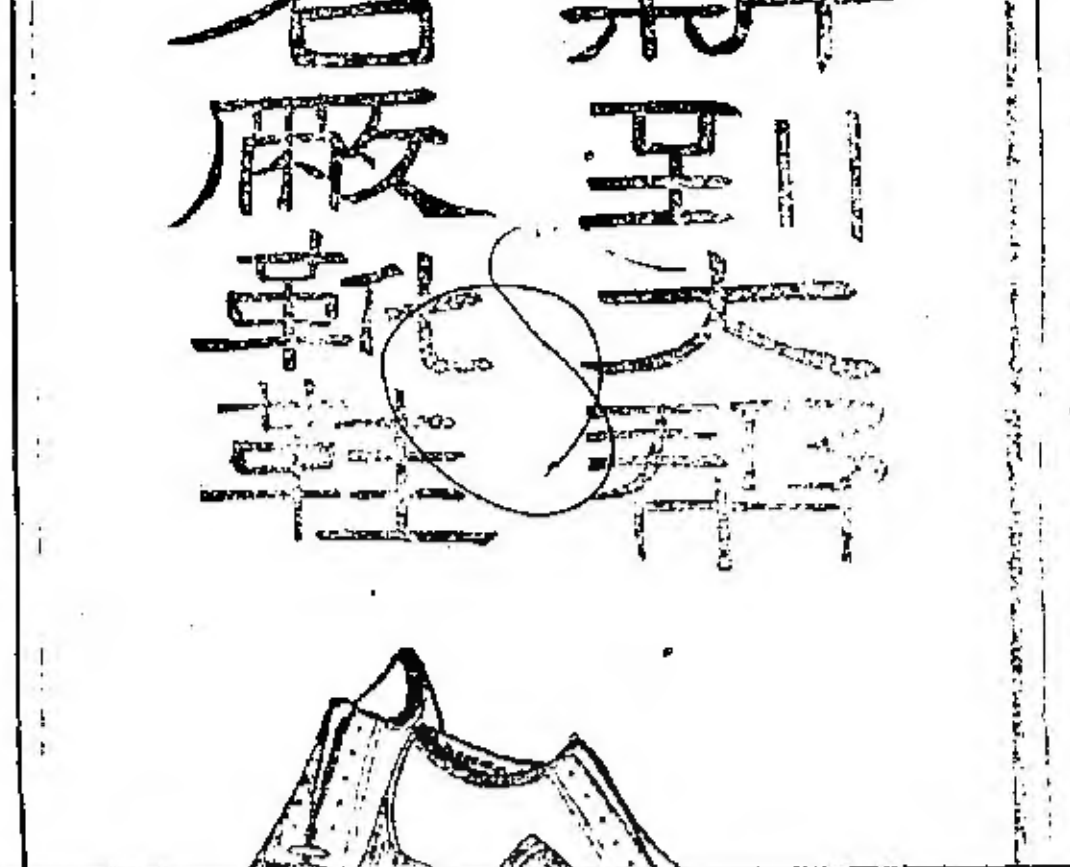 新到大帮
名廠靴鞋